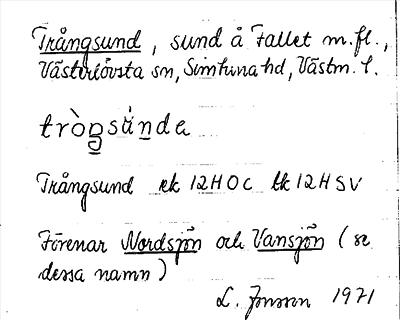 Trångsund, sund å Fallet m.fl.,
Västerlövsta sn, Simtuna hd, Västm. l.
tròŋsùnda
Trångsund ek 12H0C tk 12H SV
Förenar Nordsjön och Vansjön (se
dessa namn)
L. Jonsson 1971